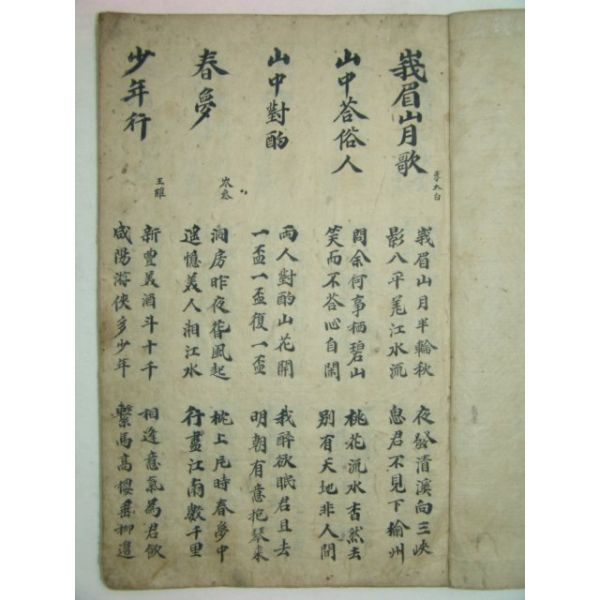 峩眉山月歌
李太白
峩眉山月半輪秋
影入平羌江水流
夜發清溪向三峽
思君不見下楡州
山中荅俗人
問余何事栖碧山
笑而不荅心自閑
桃花流水杳然去
別有天地非人間
山中對酌
兩人對酌山花開
一盃一盃復一盃
我醉欲眠君且去
明朝有意抱琴來
春夢
岑參
洞房昨夜春風起
遥憶美人湘江水
枕上片時春夢中
行盡江南數千里
少年行
王維
新豊美酒斗十千
咸陽游俠多少年
相逢意氣為君飮
繫馬高樓垂柳邉